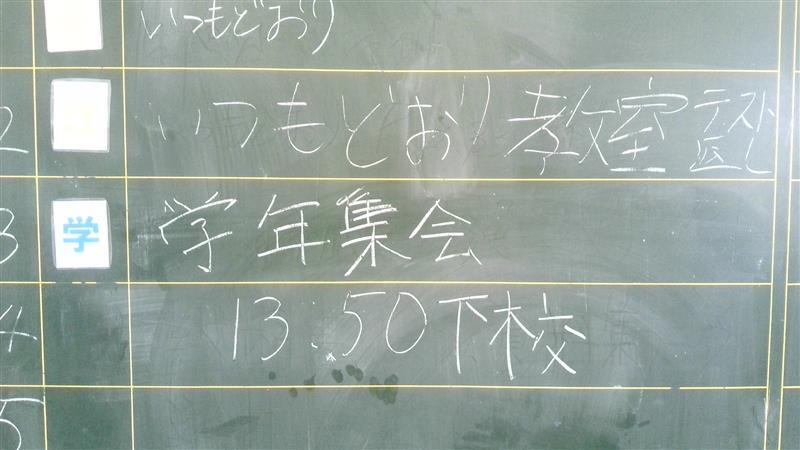 いつもどおり
2 いつもどおり教室 テスト返し
3 学 学年集会
4 13:50下校
5